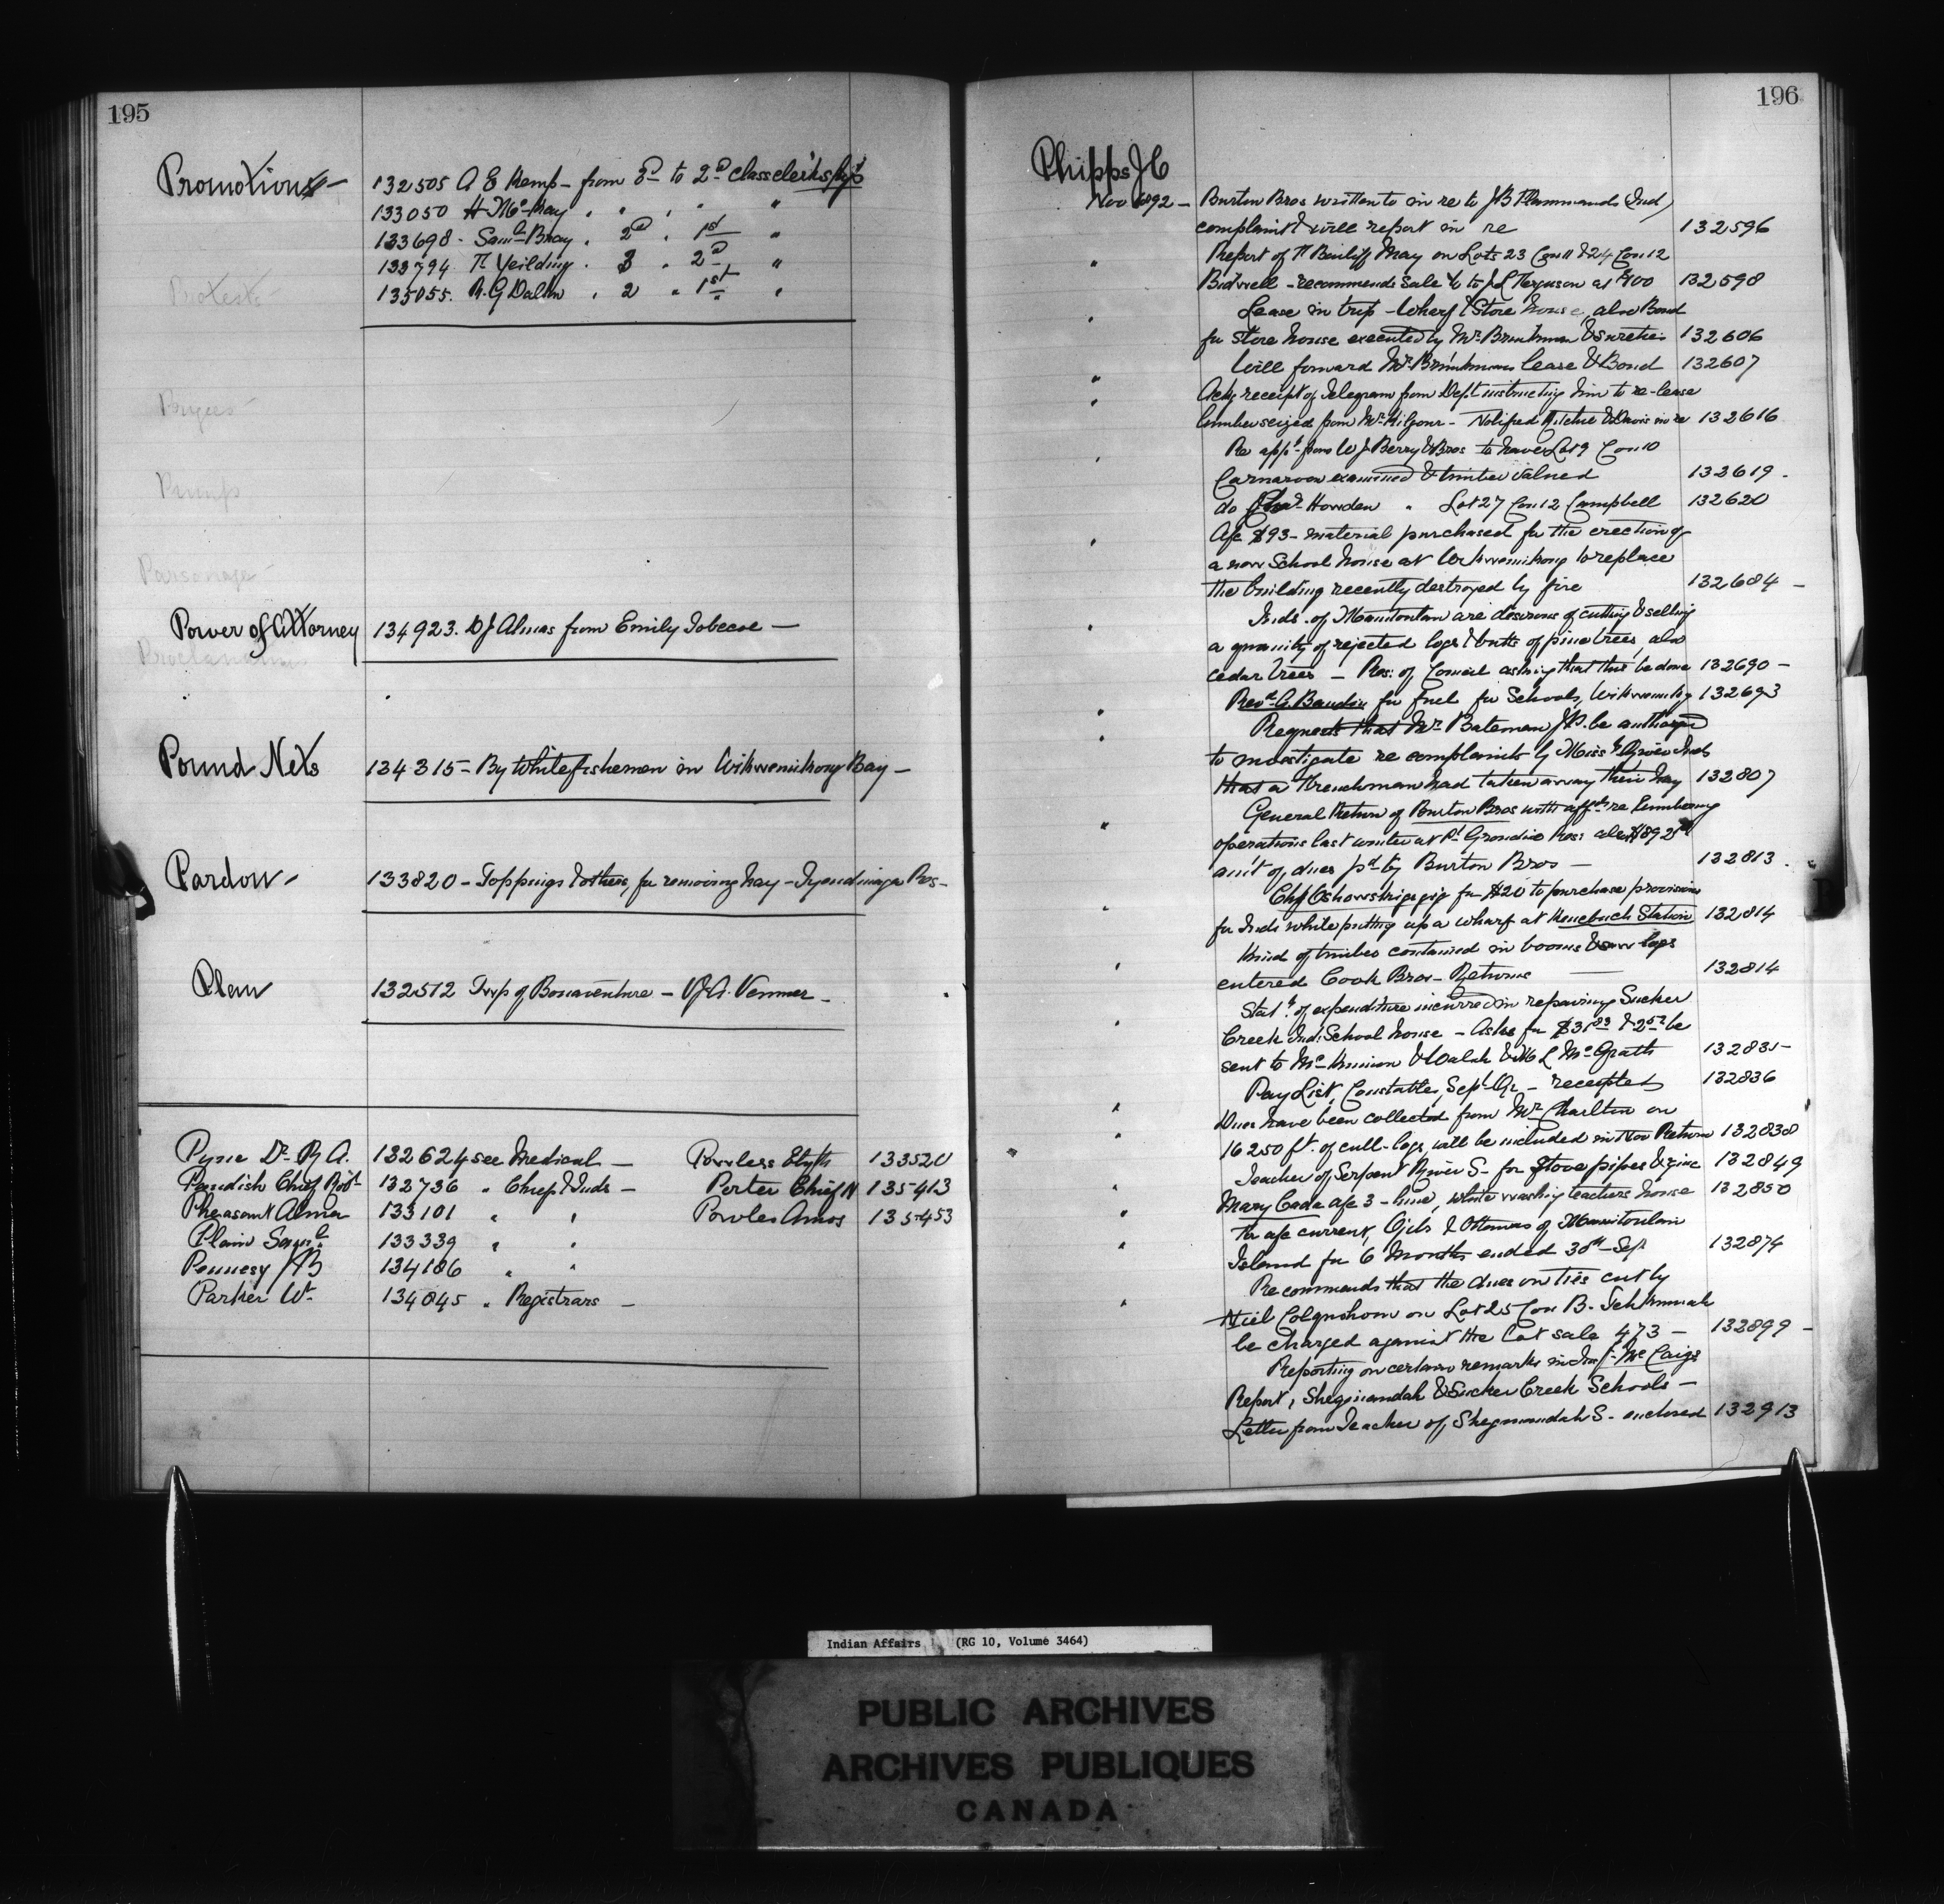 195
Promotions -
132505 A E Kemp - from 3rd to 2nd class clerkships
133050 H McKay " " " " "
133698 - Saml Bray " 2nd " 1st "
133794 T. Yeilding " 3 " 2nd "
135055. R. G Dalton " 2 " 1st "
Protests
Prizes
Pumps
Parsonage -
Power of Attorney
134923. D J Almas from Emily Tobecoe -
Proclamations
Pound Nets
134315 - By White fishermen in Wikwemikong Bay -
Pardon -
133820 - Toppings & others, for removing hay - Tyendinaga Res -
Plan
132512 Twp of Bonaventure - A. Venner -
Pyne Dr. R A. 132624 see Medical - Powless Elijth 133520
Pandish Chief Robt 132736 " Chiefs & Inds - Porter Chief N 135413
Pheasant Alma 133101 " " Powles Amos 135453
Plain Saml 133339 " "
Pennesy J B 134186 " "
Parker W. 134845 " Registrars -
196
Phipps J C
Nov 1892 - Burton Bros written to in re to J B Flammands (Ind)
complaint & will report in re 132596
" Report of T Bailiff May on Lots 23 Con 11 & 24 Con 12
Bidwell - recommends sale to J L Ferguson at $100 132598
" Lease in trip - Wharf & Store house, also Bond
for store house executed by Mr. Brinkman & sureties 132606
" Will forward Mr. Brinkmans lease & Bond 132607
" Ackg receipt of telegram from Dept instructing him to re-lease
lumber seized from Mr. Kilgour - Notified Ritchie & Davis in re 132616
" Re appn from W J Berry & Bros to have Lot 9 Con 10
Carnarvon examined & timber valued 132619 -
do Chas. Howden " Lot 27 Con 12 Campbell 132620
" A/c $93 - material purchased for the erection of
a new School house at Wikwemikong to replace
the building recently destroyed by fire 132684 -
" Inds. of Manitoulin are desirous of cutting & selling
a quanity of rejected logs & butts of pine trees, also
cedar trees - Res: of Council asking that this be done 132690 -
" Revd. A. Baudin for fuel for Schools, Wikwemikg 132693
" Requests that Mr. Bateman J.P. be authorized
to investigate re complaints by Miss. River Inds
that a Frenchman had taken away their hay 132807
" General Return of Burton Bros with affts re lumbering
operations last winter at Pt Grondine Res: also $892
am't of, dues pd by Burton Bros - 132813.
" Chf Oshawskigezig for $20 to purchase provisions
for Inds while putting up a wharf at Henebuch Station 132814
" Kind of timber contained in booms & saw logs
entered Cook Bros - Returns - 132814
" Statt. of expenditure incurred in repairing Sucker
Creek Ind: School house - Asks for $31.83 & 2.52 be
sent to McKinnon & Walsh & L McGrath 132835 -
" Pay List, Constables, Sept. Qr - receipted 132836
" Dues have been collected from Mr. Charlton on
16250 ft. of cull-logs, will be included in Nov Return 132838
" Teacher of Serpent River S - for stove pipes & zinc 132849
" Mary Cada a/c 3 - lime, white washing teachers house 132850
" Tr a/c current, Ojibs & Ottawas of Manitoulin
Island for 6 Months ended 30th - Sep. 132874
" Recommends that the dues on ties cut by
Niel Colquhoun on Lot 25 Con B. Tehkummah
be charged against the Lot sale 473 - 132899 -
Reporting on certain remarks in Ins. McCaigs
Report, Sheguiandah & Sucker Creek Schools -
Letter from Teacher of Sheguiandah S - enclosed 132913
Indian Affairs (RG 10, Volume 3464)
PUBLIC ARCHIVES
ARCHIVES PUBLIQUES
CANADA